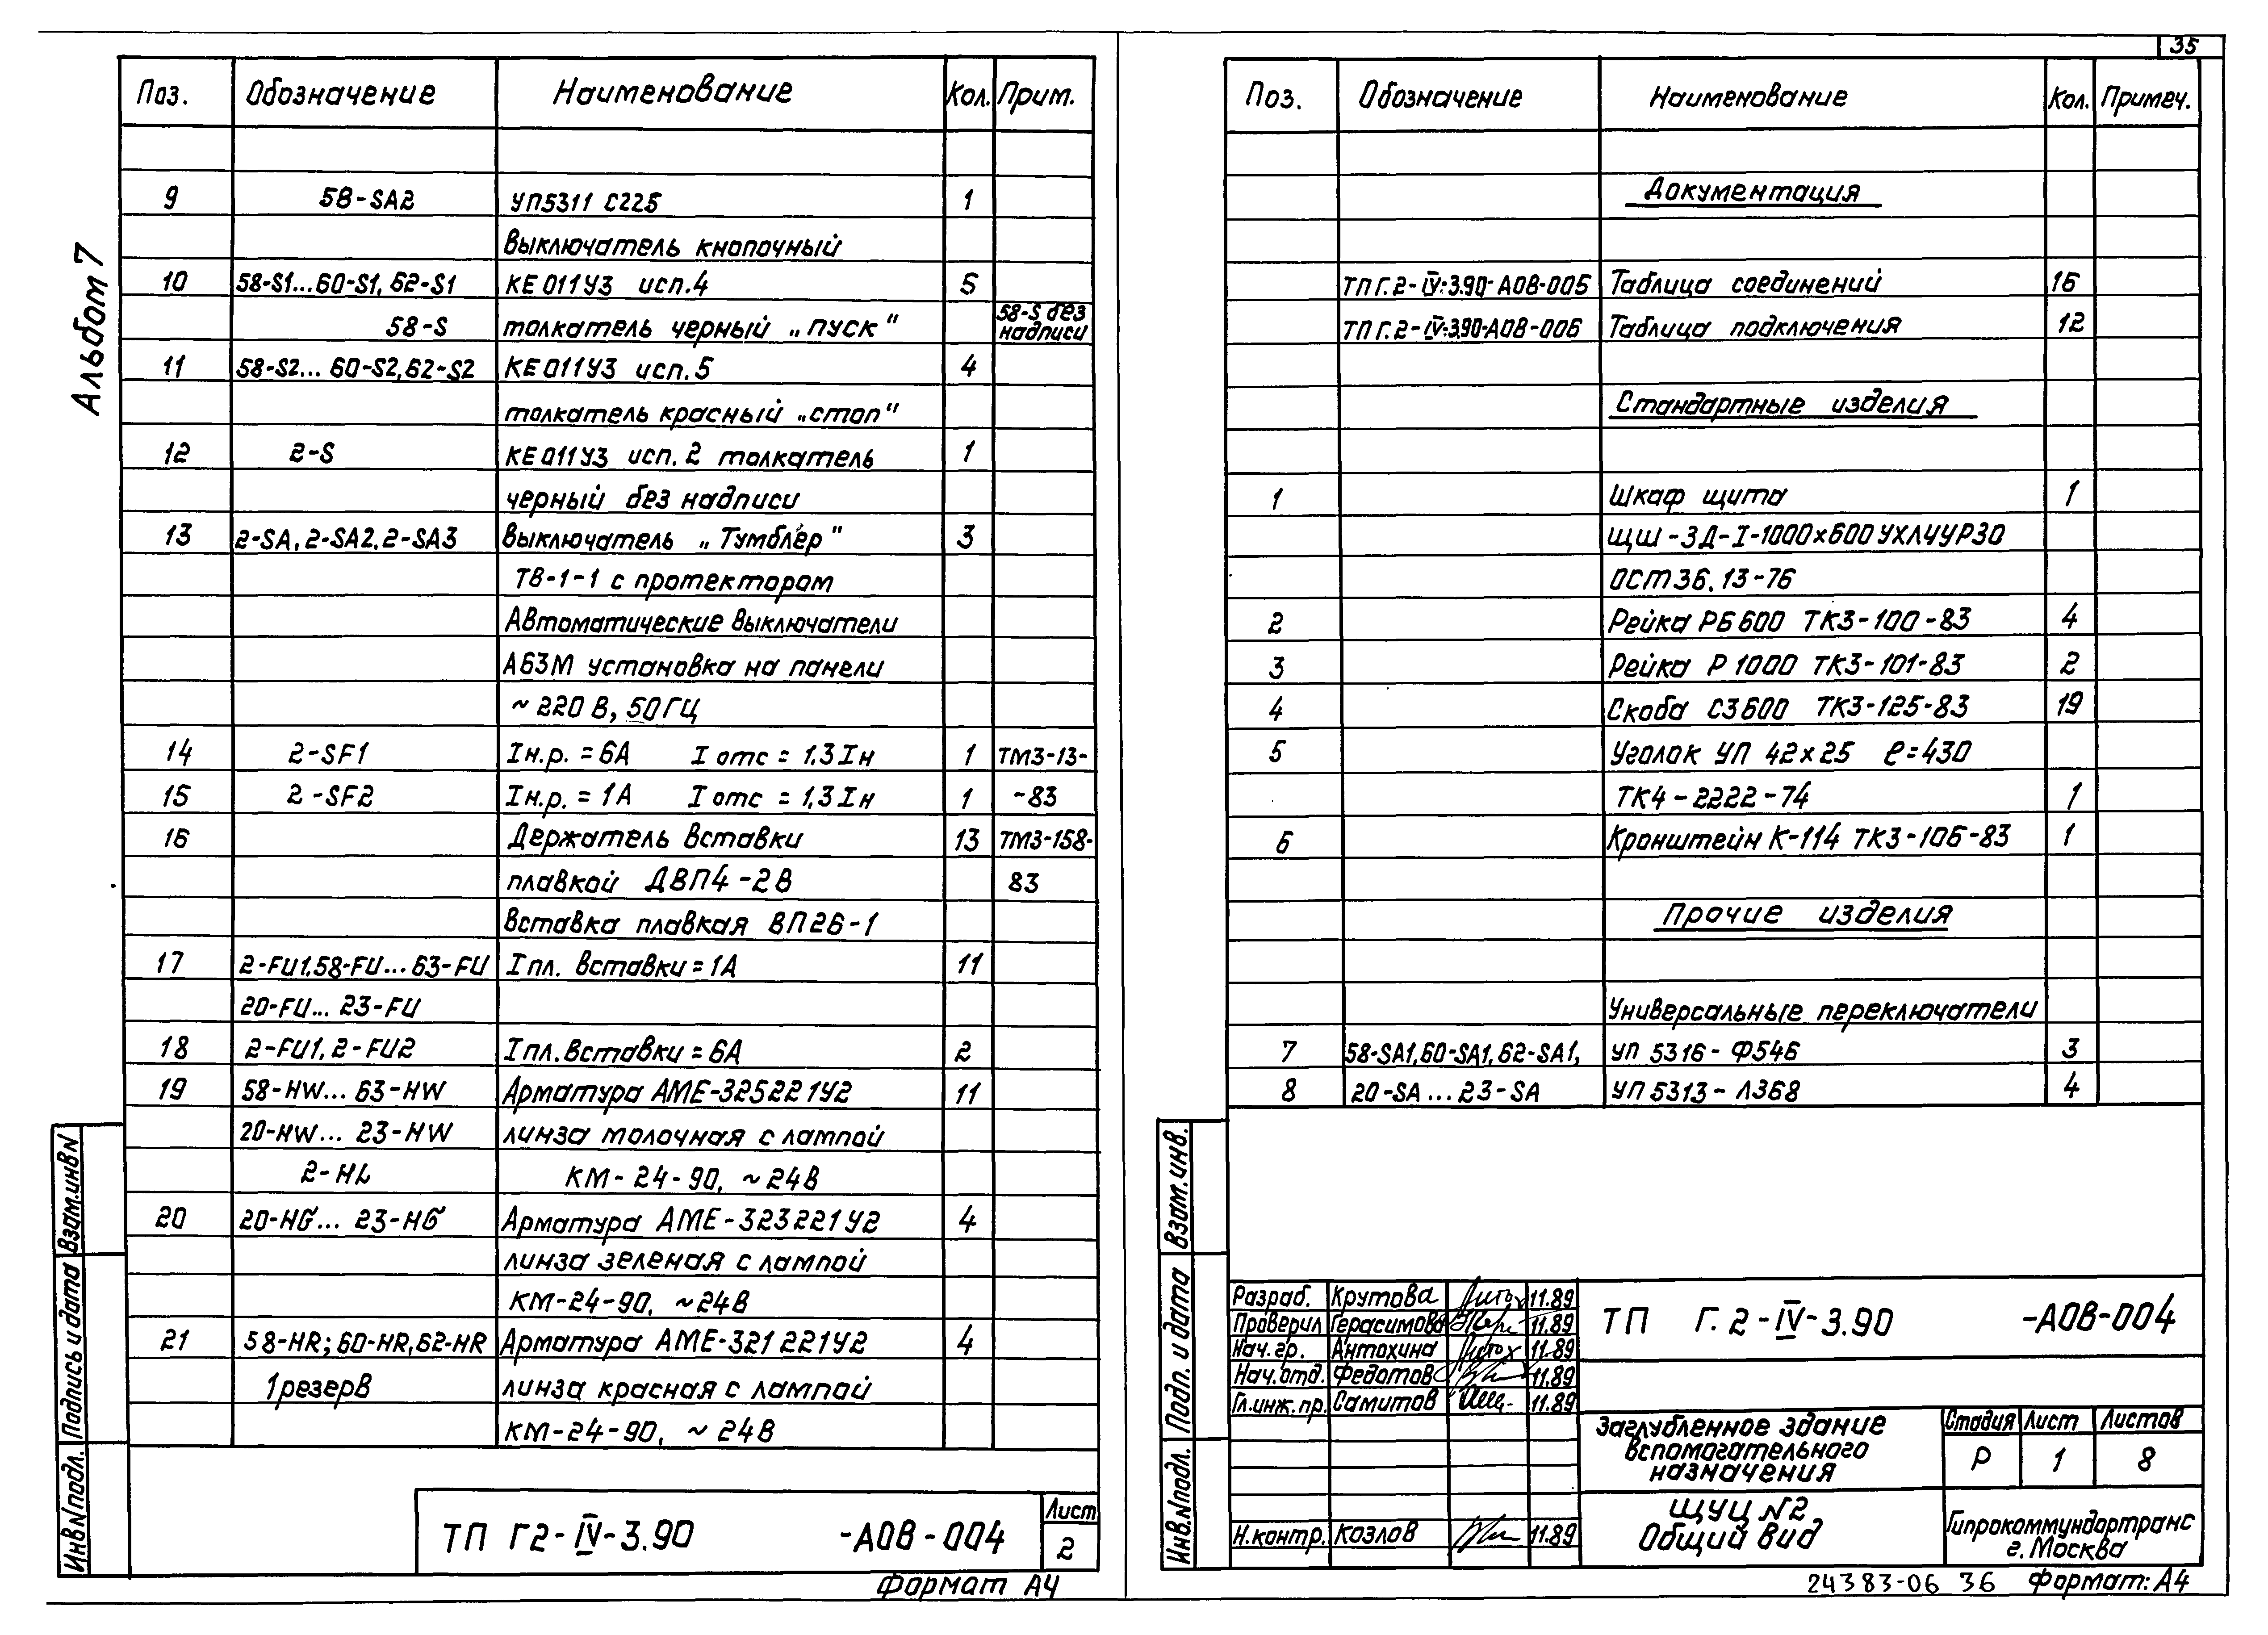 35
Альбом 7
Поз. Обозначение Наименование Кол. Прим.
9 58-SA2 УП5311 С225 1
Выключатель кнопочный
10 58-S1...60-S1, 62-S1 КЕ 011У3 исп.4 5
58-S толкатель черный „ПУСК" 58-S без надписи
11 58-S2... 60-S2, 62-S2 КЕ 011У3 исп.5 4
толкатель красный „стоп"
12 2-S КЕ 011У3 исп. 2 толкатель 1
черный без надписи
13 2-SA, 2-SA2, 2-SA3 Выключатель „Тумблер" 3
ТВ-1-1 с протектором
Автоматические выключатели
А63М установка на панели
~ 220 В, 50 ГЦ
14 2-SF1 Iн.р. = 6А I отс = 1,3 Iн 1 ТМ3-13-
15 2-SF2 Iн.р. = 1А I отс = 1,3 Iн 1 -83
16 Держатель вставки 13 ТМ3-158-
плавкой ДВП4-2В 83
Вставка плавкая ВП2Б-1
17 2-FU1,58-FU...63-FU Iпл. вставки = 1А 11
20-FU... 23-FU
18 2-FU1, 2-FU2 Iпл. вставки = 6А 2
19 58-HW... 63-HW Арматура АМЕ-325221У2 11
20-HW... 23-HW линза молочная с лампой
2-HL КМ-24-90, ~24В
20 20-HG... 23-HG Арматура АМЕ-323221У2 4
линза зеленая с лампой
КМ-24-90, ~24В
21 58-HR; 60-HR, 62-HR Арматура АМЕ-321221У2 4
1 резерв линза красная с лампой
КМ-24-90, ~ 24В
Взам.инв N
Подпись и дата
Инв N подл.
ТП Г2-IV-3.90 -АОВ-004
Лист
2
Формат А4
Поз. Обозначение Наименование Кол. Примеч.
Документация
ТП Г.2-IV-3.90-АОВ-005 Таблица соединений 16
ТП Г.2-IV-3.90-АОВ-006 Таблица подключения 12
Стандартные изделия
1 Шкаф щита 1
ЩШ-3Д-I-1000х600 УХЛ4УР30
ОСТ36.13-76
2 Рейка РБ 600 ТК3-100-83 4
3 Рейка Р 1000 ТК3-101-83 2
4 Скоба С3 600 ТК3-125-83 19
5 Уголок УП 42х25 ℓ=430
ТК4-2222-74 1
6 Кронштейн К-114 ТК3-106-83 1
Прочие изделия
Универсальные переключатели
7 58-SA1,60-SA1,62-SA1, УП 5316-Ф546 3
8 20-SA...23-SA УП 5313-Л368 4
Взам.инв.
Подп. и дата
Инв.N подл.
Разраб. Крутова 11.89
Проверил Герасимова 11.89
Нач.гр. Антохина 11.89
Нач.отд. Федотов 11.89
Гл.инж.пр. Самитов 11.89
Н.контр. Козлов 11.89
ТП Г.2-IV-3.90 -АОВ-004
Заглубленное здание
вспомогательного
назначения
Стадия Лист Листов
Р 1 8
ЩУЦ N2
Общий вид
Гипрокоммундортранс
г. Москва
24383-06 36 Формат: А4